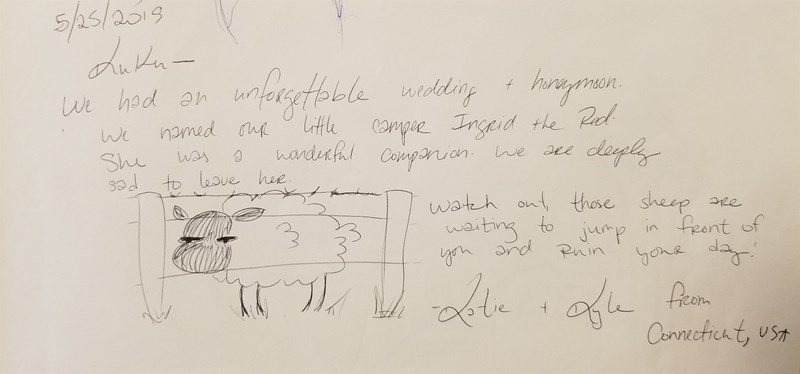 5/25/2019
KuKu—
We had an unforgettable wedding + honeymoon.
We named our little camper Ingrid the Red.
She was a wonderful companion. We are deeply
sad to leave her.
Watch out, those sheep are
waiting to jump in front of
you and ruin your day!
-Katie + Kyle from
Connecticut, USA